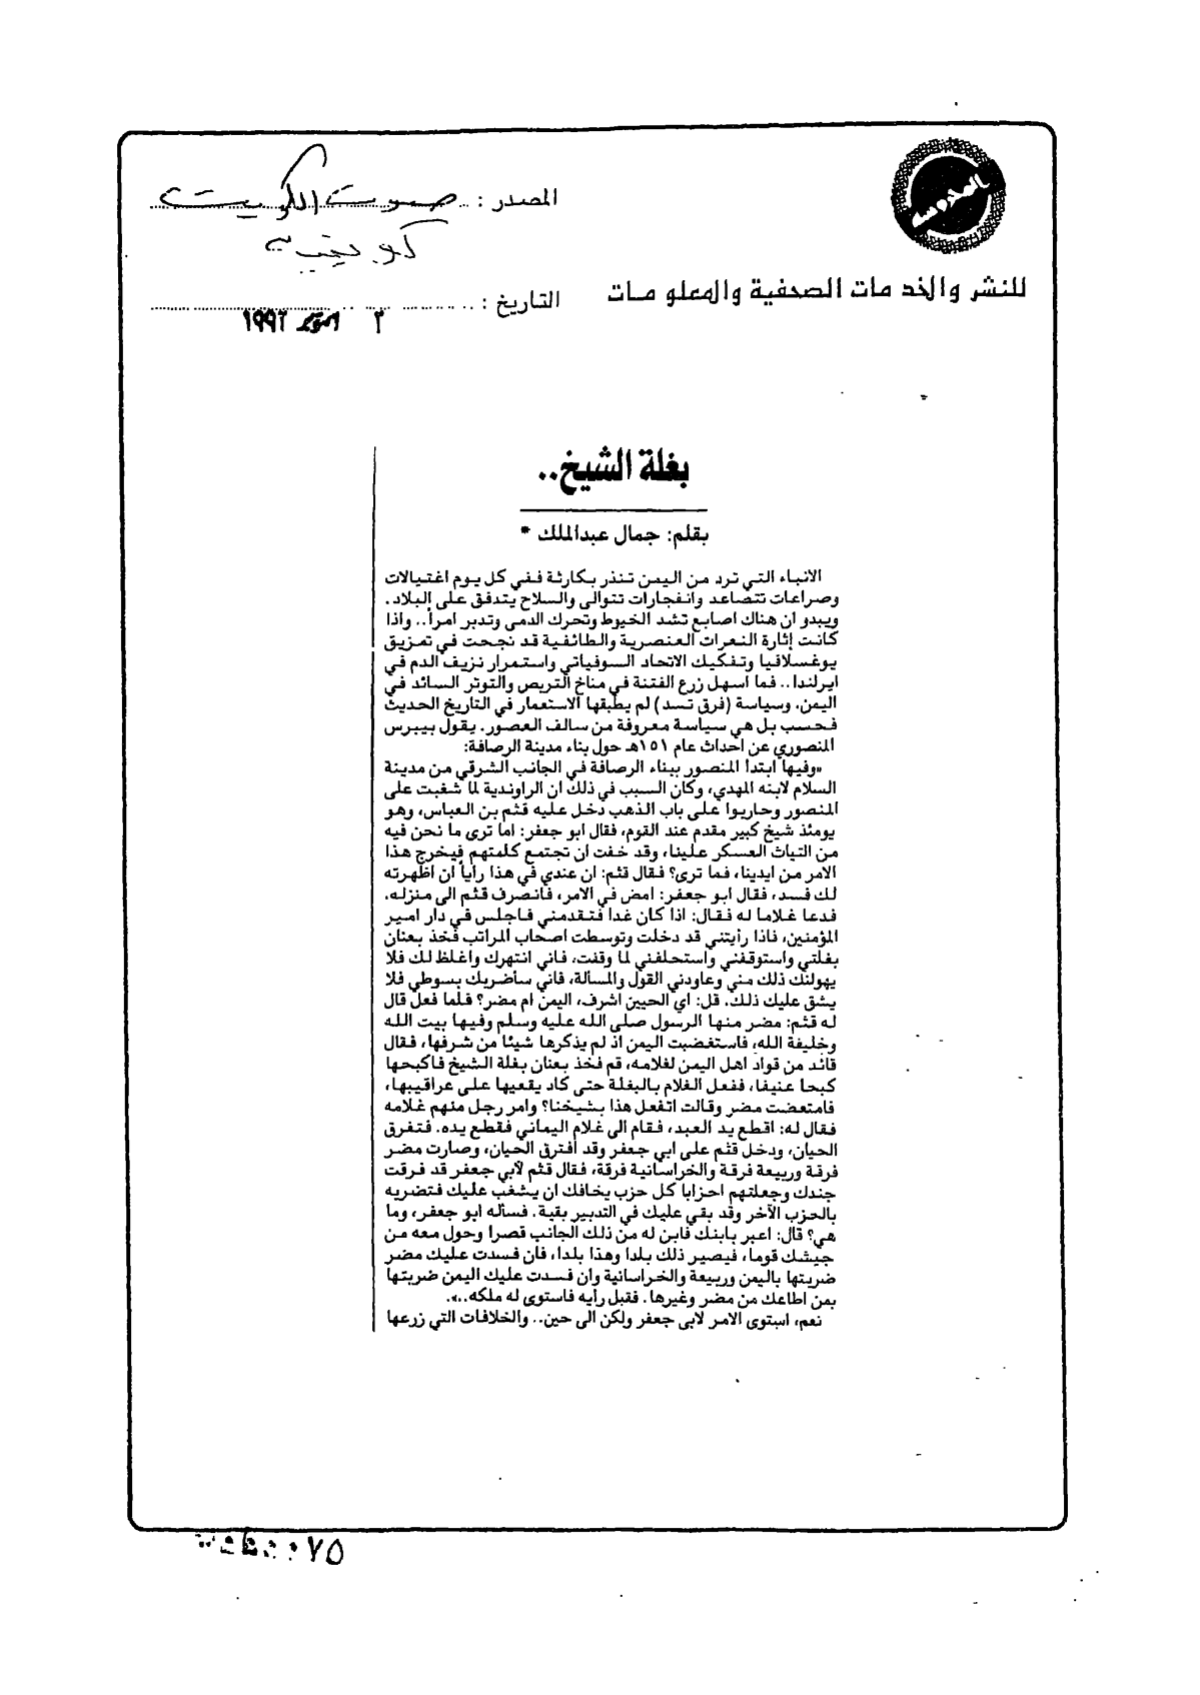 المصدر : صوت الكويت
كويتية
للنشر والخدمات الصحفية والمعلومات
التاريخ :
٢ اكتوبر ١٩٩٢
بغلة الشيخ..
بقلم: جمال عبدالملك *
الانباء التي ترد من اليمن تنذر بكارثة ففي كل يوم اغتيالات
وصراعات تتصاعد وانفجارات تتوالى والسلاح يتدفق على البلاد.
ويبدو ان هناك اصابع تشد الخيوط وتحرك الدمى وتدبر امرا.. واذا
كانت إثارة النعرات العنصرية والطائفية قد نجحت في تمزيق
يوغسلافيا وتفكيك الاتحاد السوفياتي واستمرار نزيف الدم في
ايرلندا.. فما اسهل زرع الفتنة في مناخ التربص والتوتر السائد في
اليمن، وسياسة (فرق تسد) لم يطبقها الاستعمار في التاريخ الحديث
فحسب بل هي سياسة معروفة من سالف العصور. يقول بيبرس
المنصوري عن احداث عام ١٥١هـ حول بناء مدينة الرصافة:
«وفيها ابتدا المنصور ببناء الرصافة في الجانب الشرقي من مدينة
السلام لابنه المهدي، وكان السبب في ذلك ان الراوندية لما شغبت على
المنصور وحاربوا على باب الذهب دخل عليه قثم بن العباس، وهو
يومئذ شيخ كبير مقدم عند القوم، فقال ابو جعفر: اما ترى ما نحن فيه
من التياث العسكر علينا، وقد خفت ان تجتمع كلمتهم فيخرج هذا
الامر من ايدينا، فما ترى؟ فقال قثم: ان عندي في هذا رأيا أن اظهرته
لك فسد، فقال ابو جعفر: امض في الامر، فانصرف قثم الى منزله.
فدعا غلاما له فقال: اذا كان غدا فتقدمني فاجلس في دار امير
المؤمنين، فاذا رأيتني قد دخلت وتوسطت اصحاب المراتب فخذ بعنان
بغلتي واستوقفني واستحلفني لما وقفت، فاني انتهرك واغلظ لك فلا
يهولنك ذلك مني وعاودني القول والمسألة، فاني سأضربك بسوطي فلا
يشق عليك ذلك. قل: اي الحيين اشرف، اليمن ام مضر؟ فلما فعل قال
له قثم: مضر منها الرسول صلى الله عليه وسلم وفيها بيت الله
وخليفة الله، فاستغضبت اليمن اذ لم يذكرها شيئا من شرفها، فقال
قائد من قواد اهل اليمن لغلامه، قم فخذ بعنان بغلة الشيخ فاكبحها
كبحا عنيفا، ففعل الغلام بالبغلة حتى كاد يقعيها على عراقيبها،
فامتعضت مضر وقالت اتفعل هذا بشيخنا؟ وامر رجل منهم غلامه
فقال له: اقطع يد العبد، فقام الى غلام اليماني فقطع يده. فتفرق
الحيان، ودخل قثم على ابي جعفر وقد افترق الحيان، وصارت مضر
فرقة وربيعة فرقة والخراسانية فرقة، فقال قثم لآبي جعفر قد فرقت
جندك وجعلتهم احزابا كل حزب يخافك ان يشغب عليك فتضربه
بالحزب الآخر وقد بقي عليك في التدبير بقية. فسأله ابو جعفر، وما
هي؟ قال: اعبر بابنك فابن له من ذلك الجانب قصرا وحول معه من
جيشك قوما، فيصير ذلك بلدا وهذا بلدا، فان فسدت عليك مضر
ضربتها باليمن وربيعة والخراسانية وان فسدت عليك اليمن ضربتها
بمن اطاعك من مضر وغيرها. فقبل رأيه فاستوى له ملكه..».
نعم، استوى الامر لابي جعفر ولكن الى حين.. والخلافات التي زرعها